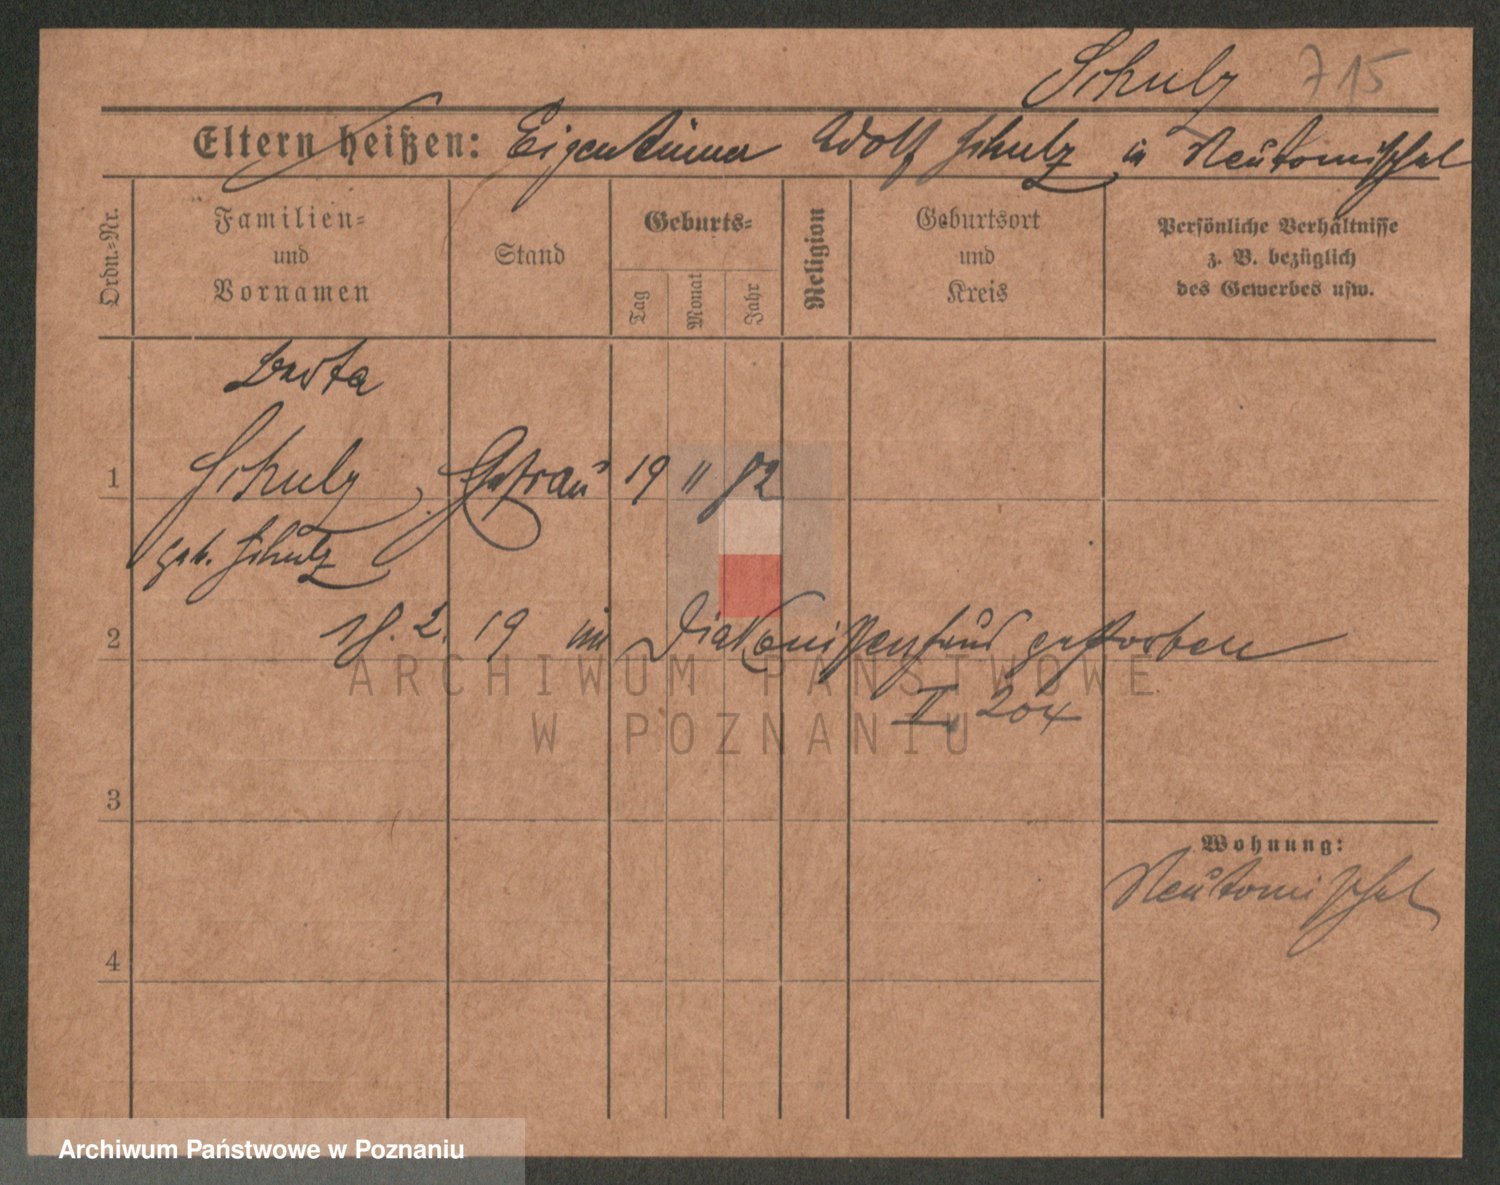 Schulz 715
Eltern heißen: Eigentümer Adolf Schulz in Neutomischel
Ordn.=Nr.
Familien=
und
Vornamen
Stand
Geburts=
Tag
Monat
Jahr
Religion
Geburtsort
und
Kreis
Persönliche Verhältnisse
z. B. bezüglich
des Gewerbes usw.
Berta
1 Schulz, Ehefrau 19 11 82
geb. Schulz
2 18. 2. 19 im Diakonissenhaus gestorben
II, 204
ARCHIWUM PAŃSTWOWE
W POZNANIU
3
Wohnung:
Neutomischel
4
Archiwum Państwowe w Poznaniu